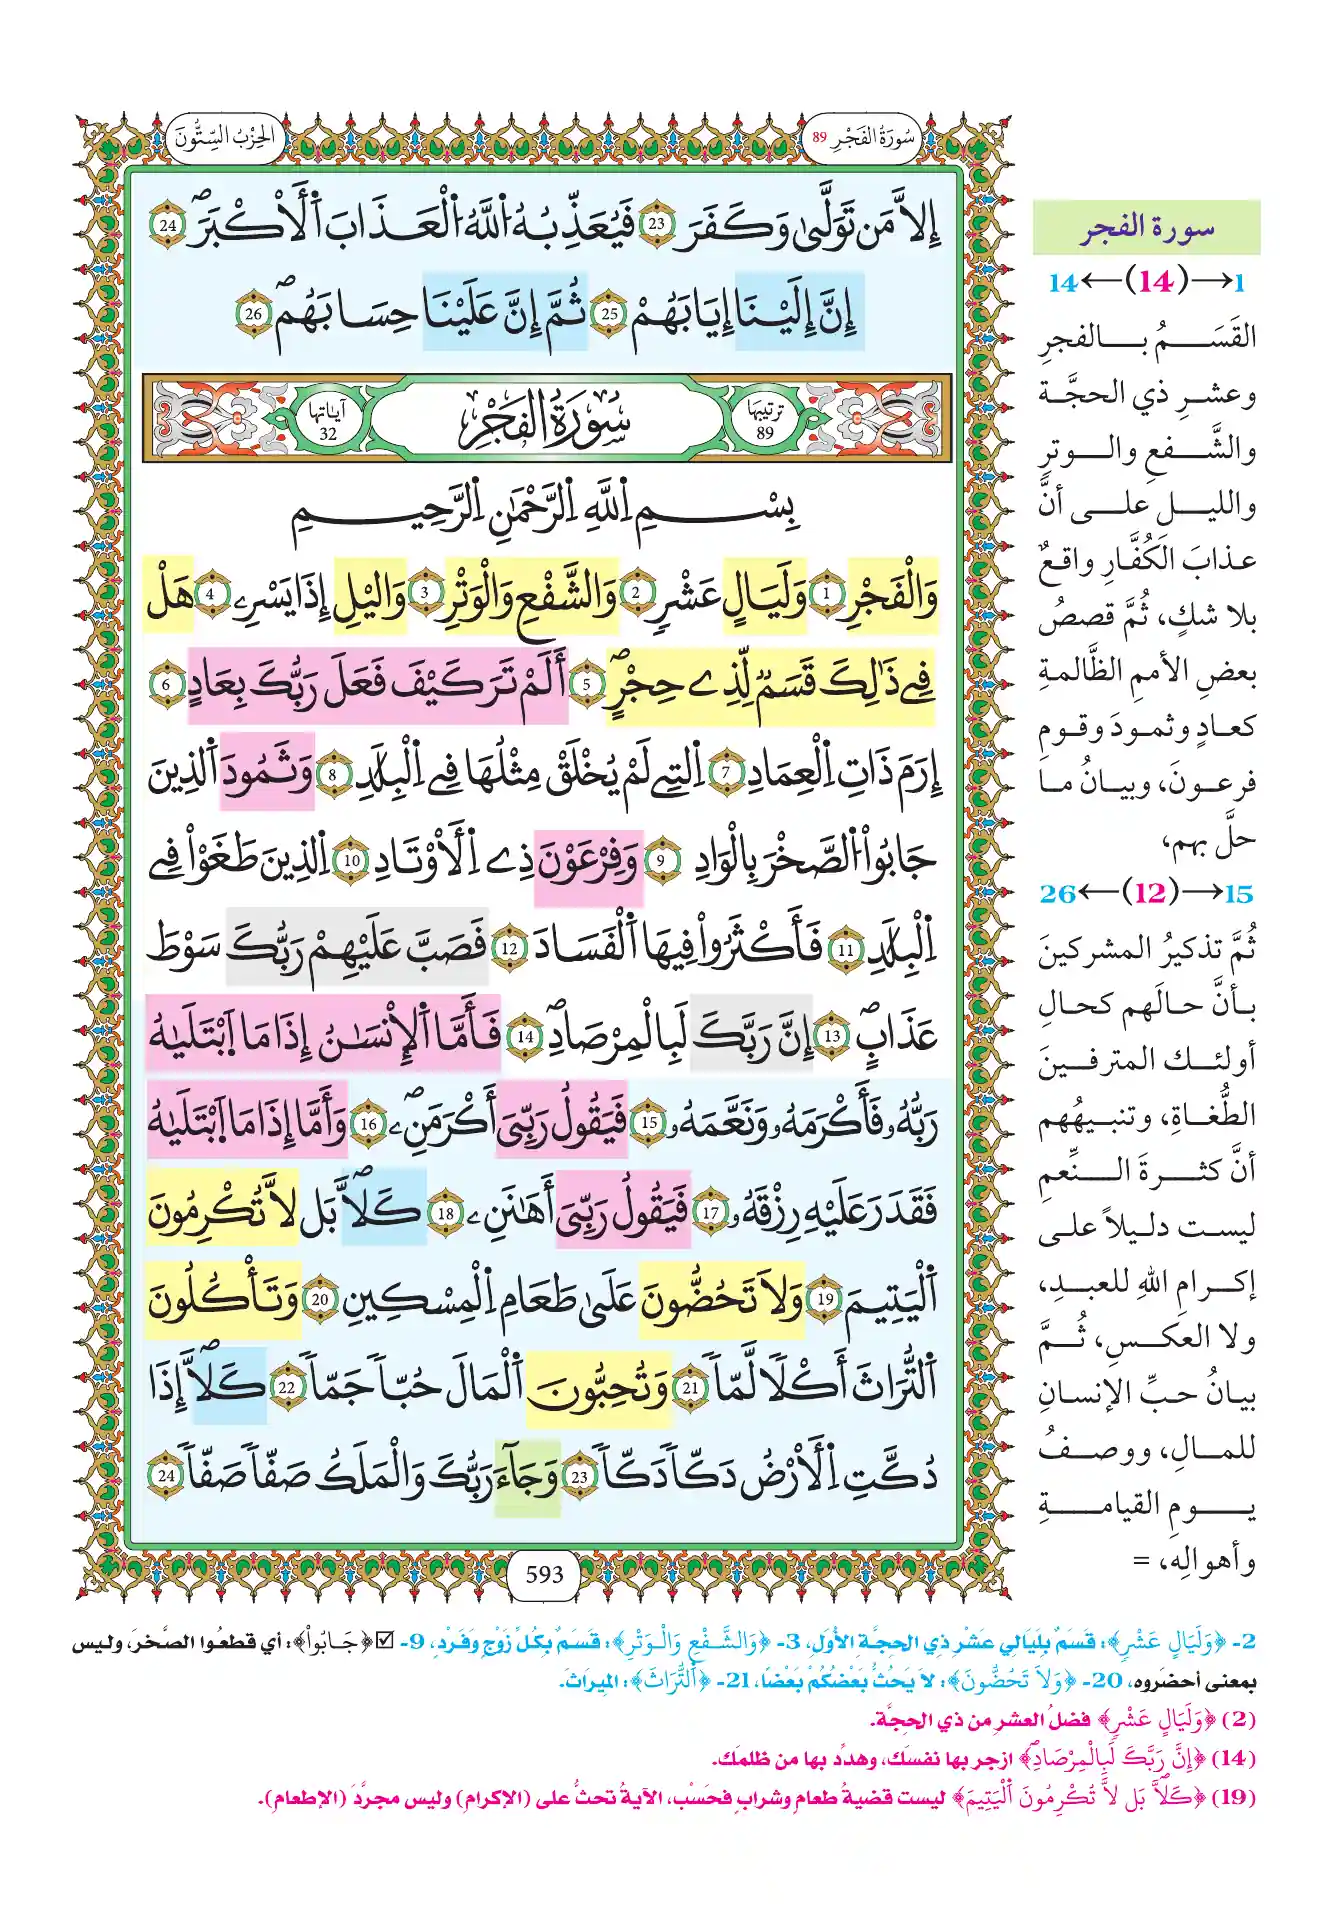 سُورَةُ الفَجْرِ 89
الحِزْبُ السِّتُّونَ
إِلَّا مَن تَوَلَّىٰ وَكَفَرَ 23 فَيُعَذِّبُهُ اُللَّهُ اُلْعَذَابَ اَلْأَكْبَرَۖ 24
إِنَّ إِلَيْنَا إِيَابَهُمْ 25 ثُمَّ إِنَّ عَلَيْنَا حِسَابَهُمۖ 26
ترتيبها 89
سُورَةُ الفَجْرِ
آياتها 32
بِسْمِ اِللَّهِ اِلرَّحْمَٰنِ اِلرَّحِيمِ
وَالْفَجْرِ 1 وَلَيَالٍ عَشْرٖ 2 وَالشَّفْعِ وَالْوَتْرِ 3 وَاليْلِ إِذَا يَسْرِۦ 4 هَلْ
فِے ذَٰلِكَ قَسَمٞ لِّذِے حِجْرٍۖ 5 أَلَمْ تَرَ كَيْفَ فَعَلَ رَبُّكَ بِعَادٍ 6
إِرَمَ ذَاتِ اِلْعِمَادِ 7 اِلتِے لَمْ يُخْلَقْ مِثْلُهَا فِے اِلْبِلَٰدِ 8 وَثَمُودَ اَلذِينَ
جَابُواْ اُلصَّخْرَ بِالْوَادِ 9 وَفِرْعَوْنَ ذِے اِلَاوْتَادِ 10 اِلذِينَ طَغَوْاْ فِے
اِلْبِلَٰدِ 11 فَأَكْثَرُواْ فِيهَا اَلْفَسَادَ 12 فَصَبَّ عَلَيْهِمْ رَبُّكَ سَوْطَ
عَذَابٍۖ 13 اِنَّ رَبَّكَ لَبِالْمِرْصَادِۖ 14 فَأَمَّا اَلْإِنسَٰنُ إِذَا مَا اَبْتَلَيٰهُ
رَبُّهُۥ فَأَكْرَمَهُۥ وَنَعَّمَهُۥ 15 فَيَقُولُ رَبِّيَ أَكْرَمَنِۦۖ 16 وَأَمَّا إِذَا مَا اَبْتَلَيٰهُ
فَقَدَرَ عَلَيْهِ رِزْقَهُۥ 17 فَيَقُولُ رَبِّيَ أَهَٰنَنِۦ 18 كَلَّاۖ بَل لَّا تُكْرِمُونَ
اَلْيَتِيمَ 19 وَلَا تَحُضُّونَ عَلَىٰ طَعَامِ اِلْمِسْكِينِ 20 وَتَأْكُلُونَ
اَلتُّرَاثَ أَكْلٗا لَّمّٗا 21 وَتُحِبُّونَ اَلْمَالَ حُبّٗا جَمّٗا 22 كَلَّاۖ إِذَا
دُكَّتِ اِلْأَرْضُ دَكّٗا دَكّٗا 23 وَجَآءَ رَبُّكَ وَالْمَلَكُ صَفّٗا صَفّٗا 24
593
سورة الفجر
1→(14)←14
القَسَمُ بالفجرِ
وعشرِ ذي الحجَّة
والشَّفعِ والوترِ
والليلِ على أنَّ
عذابَ الكُفَّارِ واقعٌ
بلا شكٍ، ثُمَّ قصصُ
بعضِ الأممِ الظَّالمةِ
كعادٍ وثمودَ وقومِ
فرعونَ، وبيانُ ما
حلَّ بهم،
15→(12)←26
ثُمَّ تذكيرُ المشركينَ
بأنَّ حالَهم كحالِ
أولئك المترفينَ
الطُّغاةِ، وتنبيهُهم
أنَّ كثرةَ النِّعمِ
ليست دليلاً على
إكرامِ اللهِ للعبدِ،
ولا العكسِ، ثُمَّ
بيانُ حبِّ الإنسانِ
للمالِ، ووصفُ
يومِ القيامةِ
وأهوالِه، =
2- ﴿وَلَيَالٍ عَشْرٖ﴾: قَسَمٌ بِلَيَالِي عَشْرِ ذي الحِجَّةِ الأُوَلِ، 3- ﴿وَالشَّفْعِ وَالْوَتْرِ﴾: قَسَمٌ بِكُلِّ زَوْجٍ وَفَرْدٍ، 9- ☑ ﴿جَابُواْ﴾: أي قطعُوا الصَّخرَ، وليس
بمعنى أحضَروه، 20- ﴿وَلَا تَحُضُّونَ﴾: لاَ يَحُثُّ بَعْضُكُمْ بَعْضًا، 21- ﴿اَلتُّرَاثَ﴾: المِيرَاثَ.
(2) ﴿وَلَيَالٍ عَشْرٖ﴾ فضلُ العشرِ من ذي الحِجَّة.
(14) ﴿إِنَّ رَبَّكَ لَبِالْمِرْصَادِۖ﴾ ازجر بها نفسَك، وهدِّد بها من ظلمَك.
(19) ﴿كَلَّاۖ بَل لَّا تُكْرِمُونَ اَلْيَتِيمَ﴾ ليست قضيةُ طعامٍ وشرابٍ فحَسْب، الآيةُ تحثُّ على (الإكرامِ) وليس مجرَّدَ (الإطعامِ).